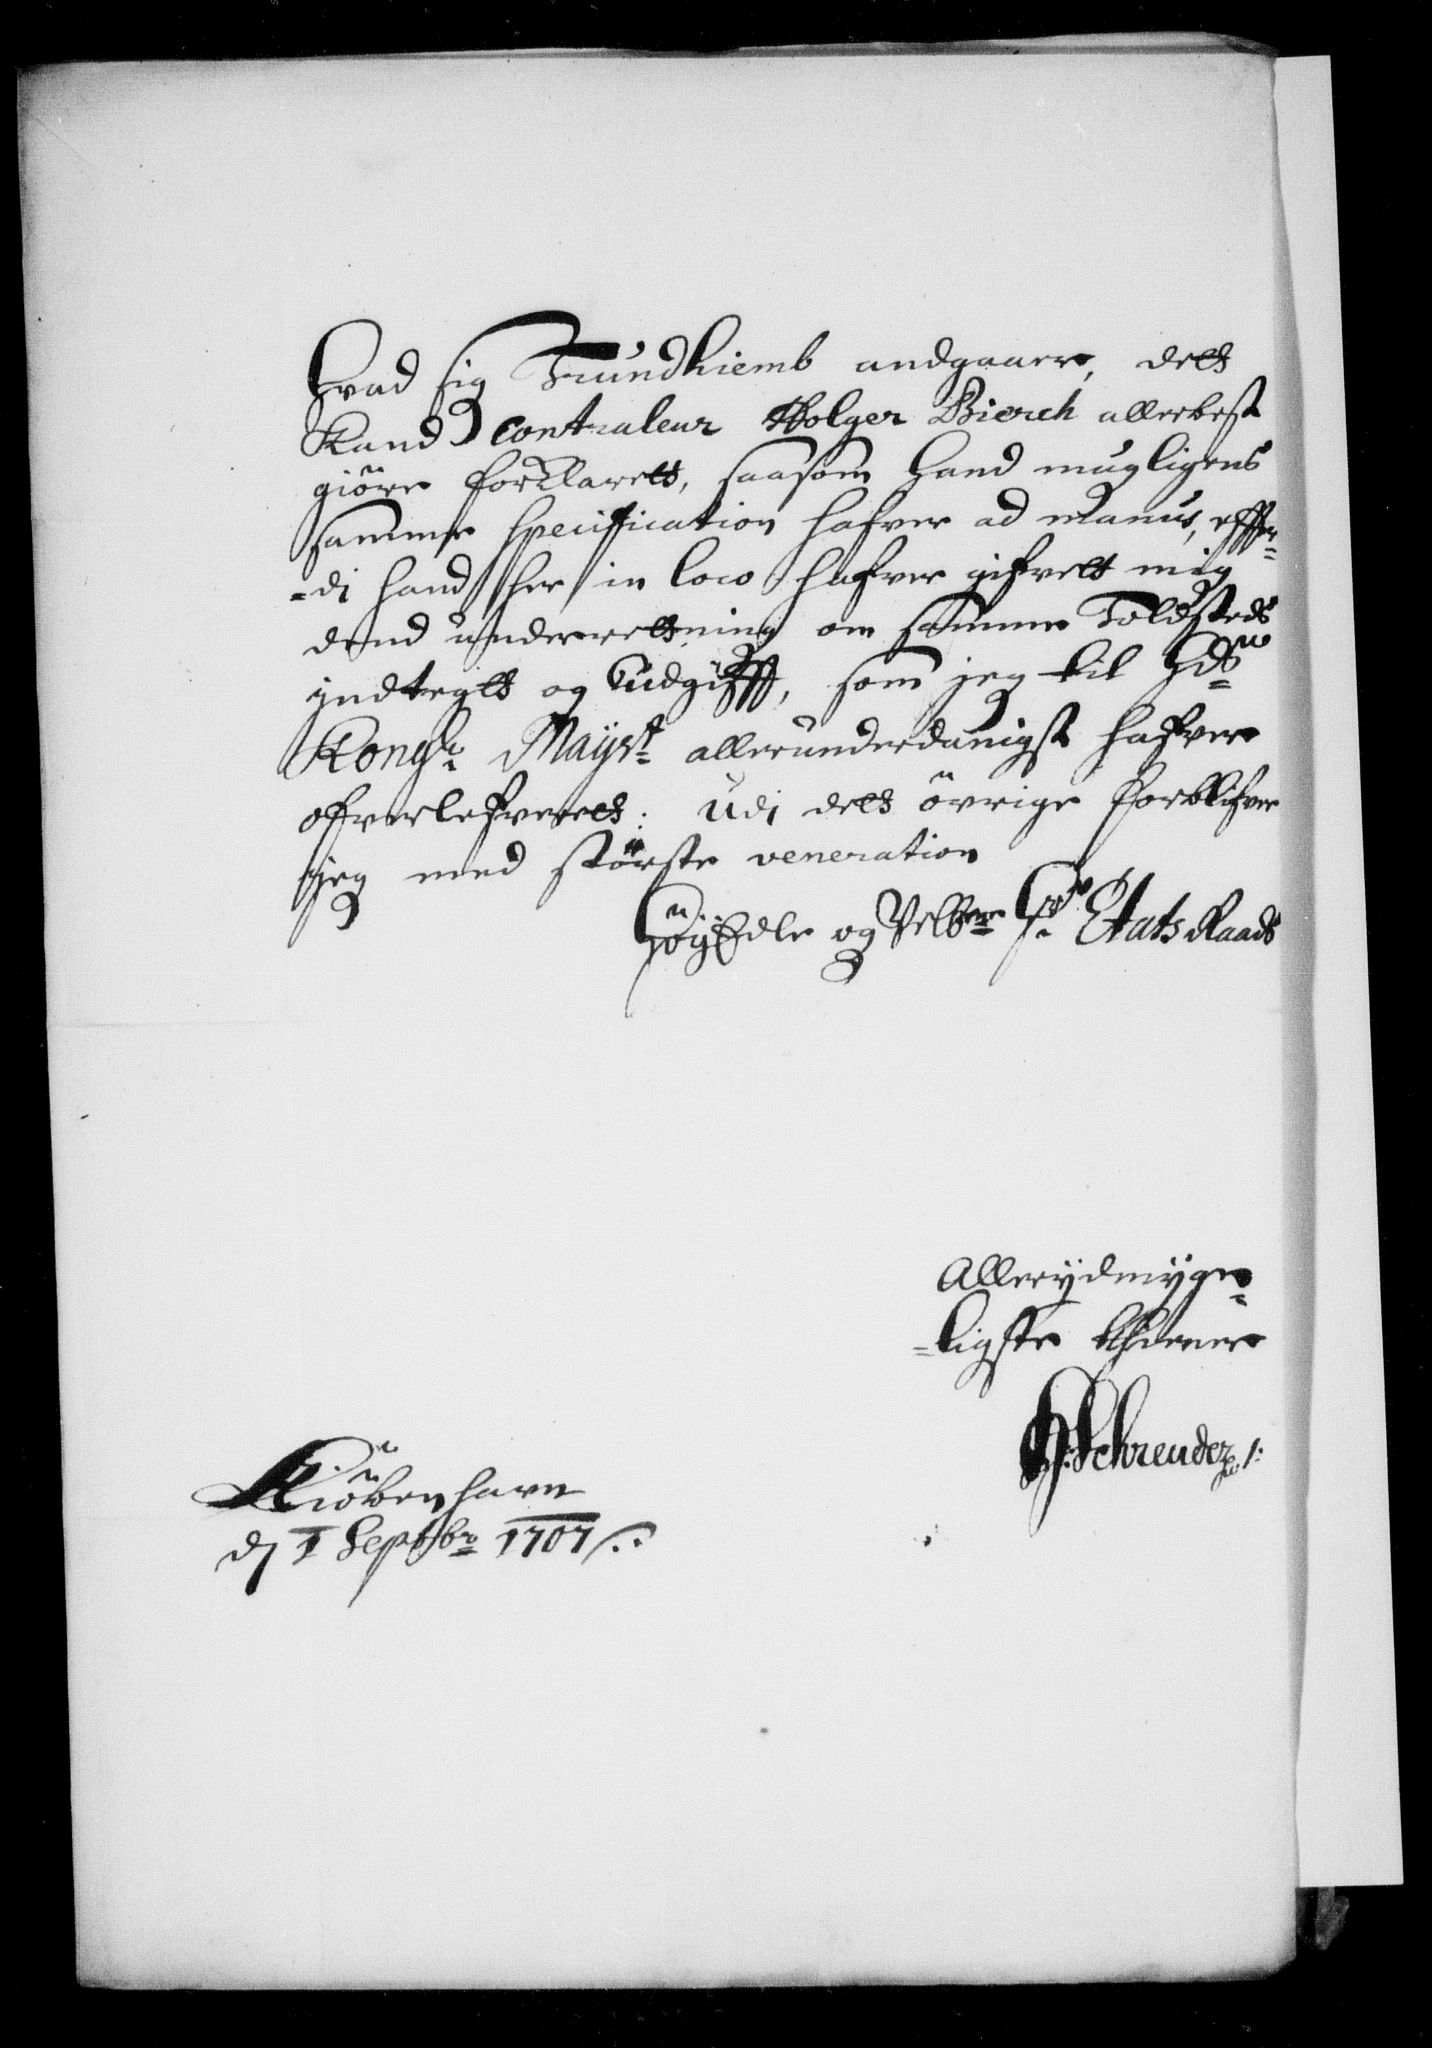 Hvad sig Trundhiemb andgaaer, dett
Kand Contraleur Holger Bierch allerbest
giöre forklarett, saasom hand mugligens
samme specification hafver ad manus, effter-
-di hand her in loco hafver gifvett mig
dend underrettning om samme Toldsteds
indtegt og Uudgifft, som jeg til Hds
Kongl: Mayst: allerunderdanigst hafver
ofverlefveret; Udi dett övrige forblifver
jeg med störste veneration
HöyEdle og Velbne Hr Etats Raads
Allerydmyge-
-ligste thiener
H: Schreuder
Kiöbenhavn
dj 1 Septbr 1707